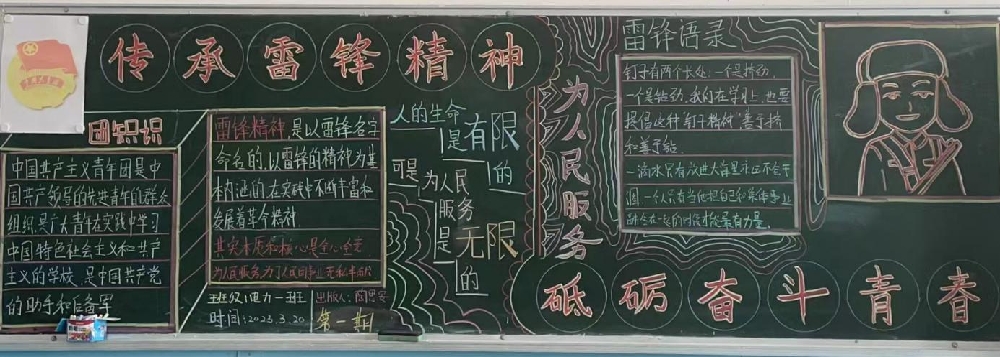 传承雷锋精神
团知识
中国共产主义青年团是中
国共产党领导的先进青年的群众
组织,是广大青年在实践中学习
中国特色社会主义和共产
主义的学校,是中国共产党
的助手和后备军
雷锋精神是以雷锋名字
命名的,以雷锋的精神为基
本内涵的,在实践中不断丰富和
发展着革命精神
其实质和核心是全心全意
为人民服务,为了人民的事业无私奉献
班级:电力一班 出版人:
时间:2023.3.20 第一期
人的生命
是有限
的
可是
为人民
服务
是无限
的
为人民服务
雷锋语录
钉子有两个长处:一个是挤劲,
一个是钻劲,我们在学业上,也要
提倡这种"钉子精神"善于挤
和善于钻
一滴水只有放进大海里永远不会干
涸一个人只有当他把自己和集体事业
融合在一起的时候才能最有力量.
砥砺奋斗青春